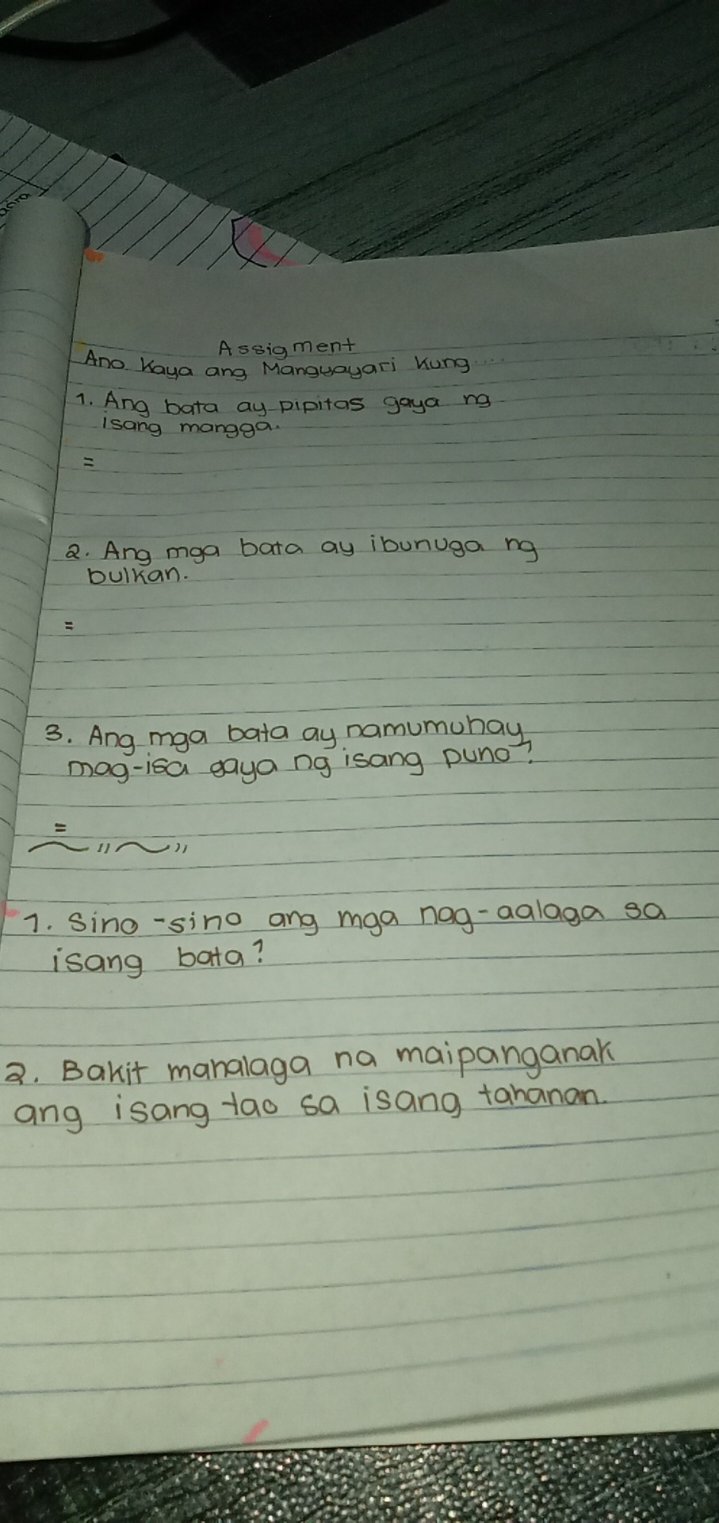 Assigment
Ano Kaya ang Mangyayari Kung ...
1. Ang bata ay pipitas gaya ng
isang mangga.
=
2. Ang mga bata ay ibunuga ng
bulkan.
=
3. Ang mga bata ay namumuhay
mag-isa gaya ng isang puno?
=
1. Sino-sino ang mga nag-aalaga sa
isang bata?
2. Bakit mahalaga na maipanganak
ang isang tao sa isang tahanan.